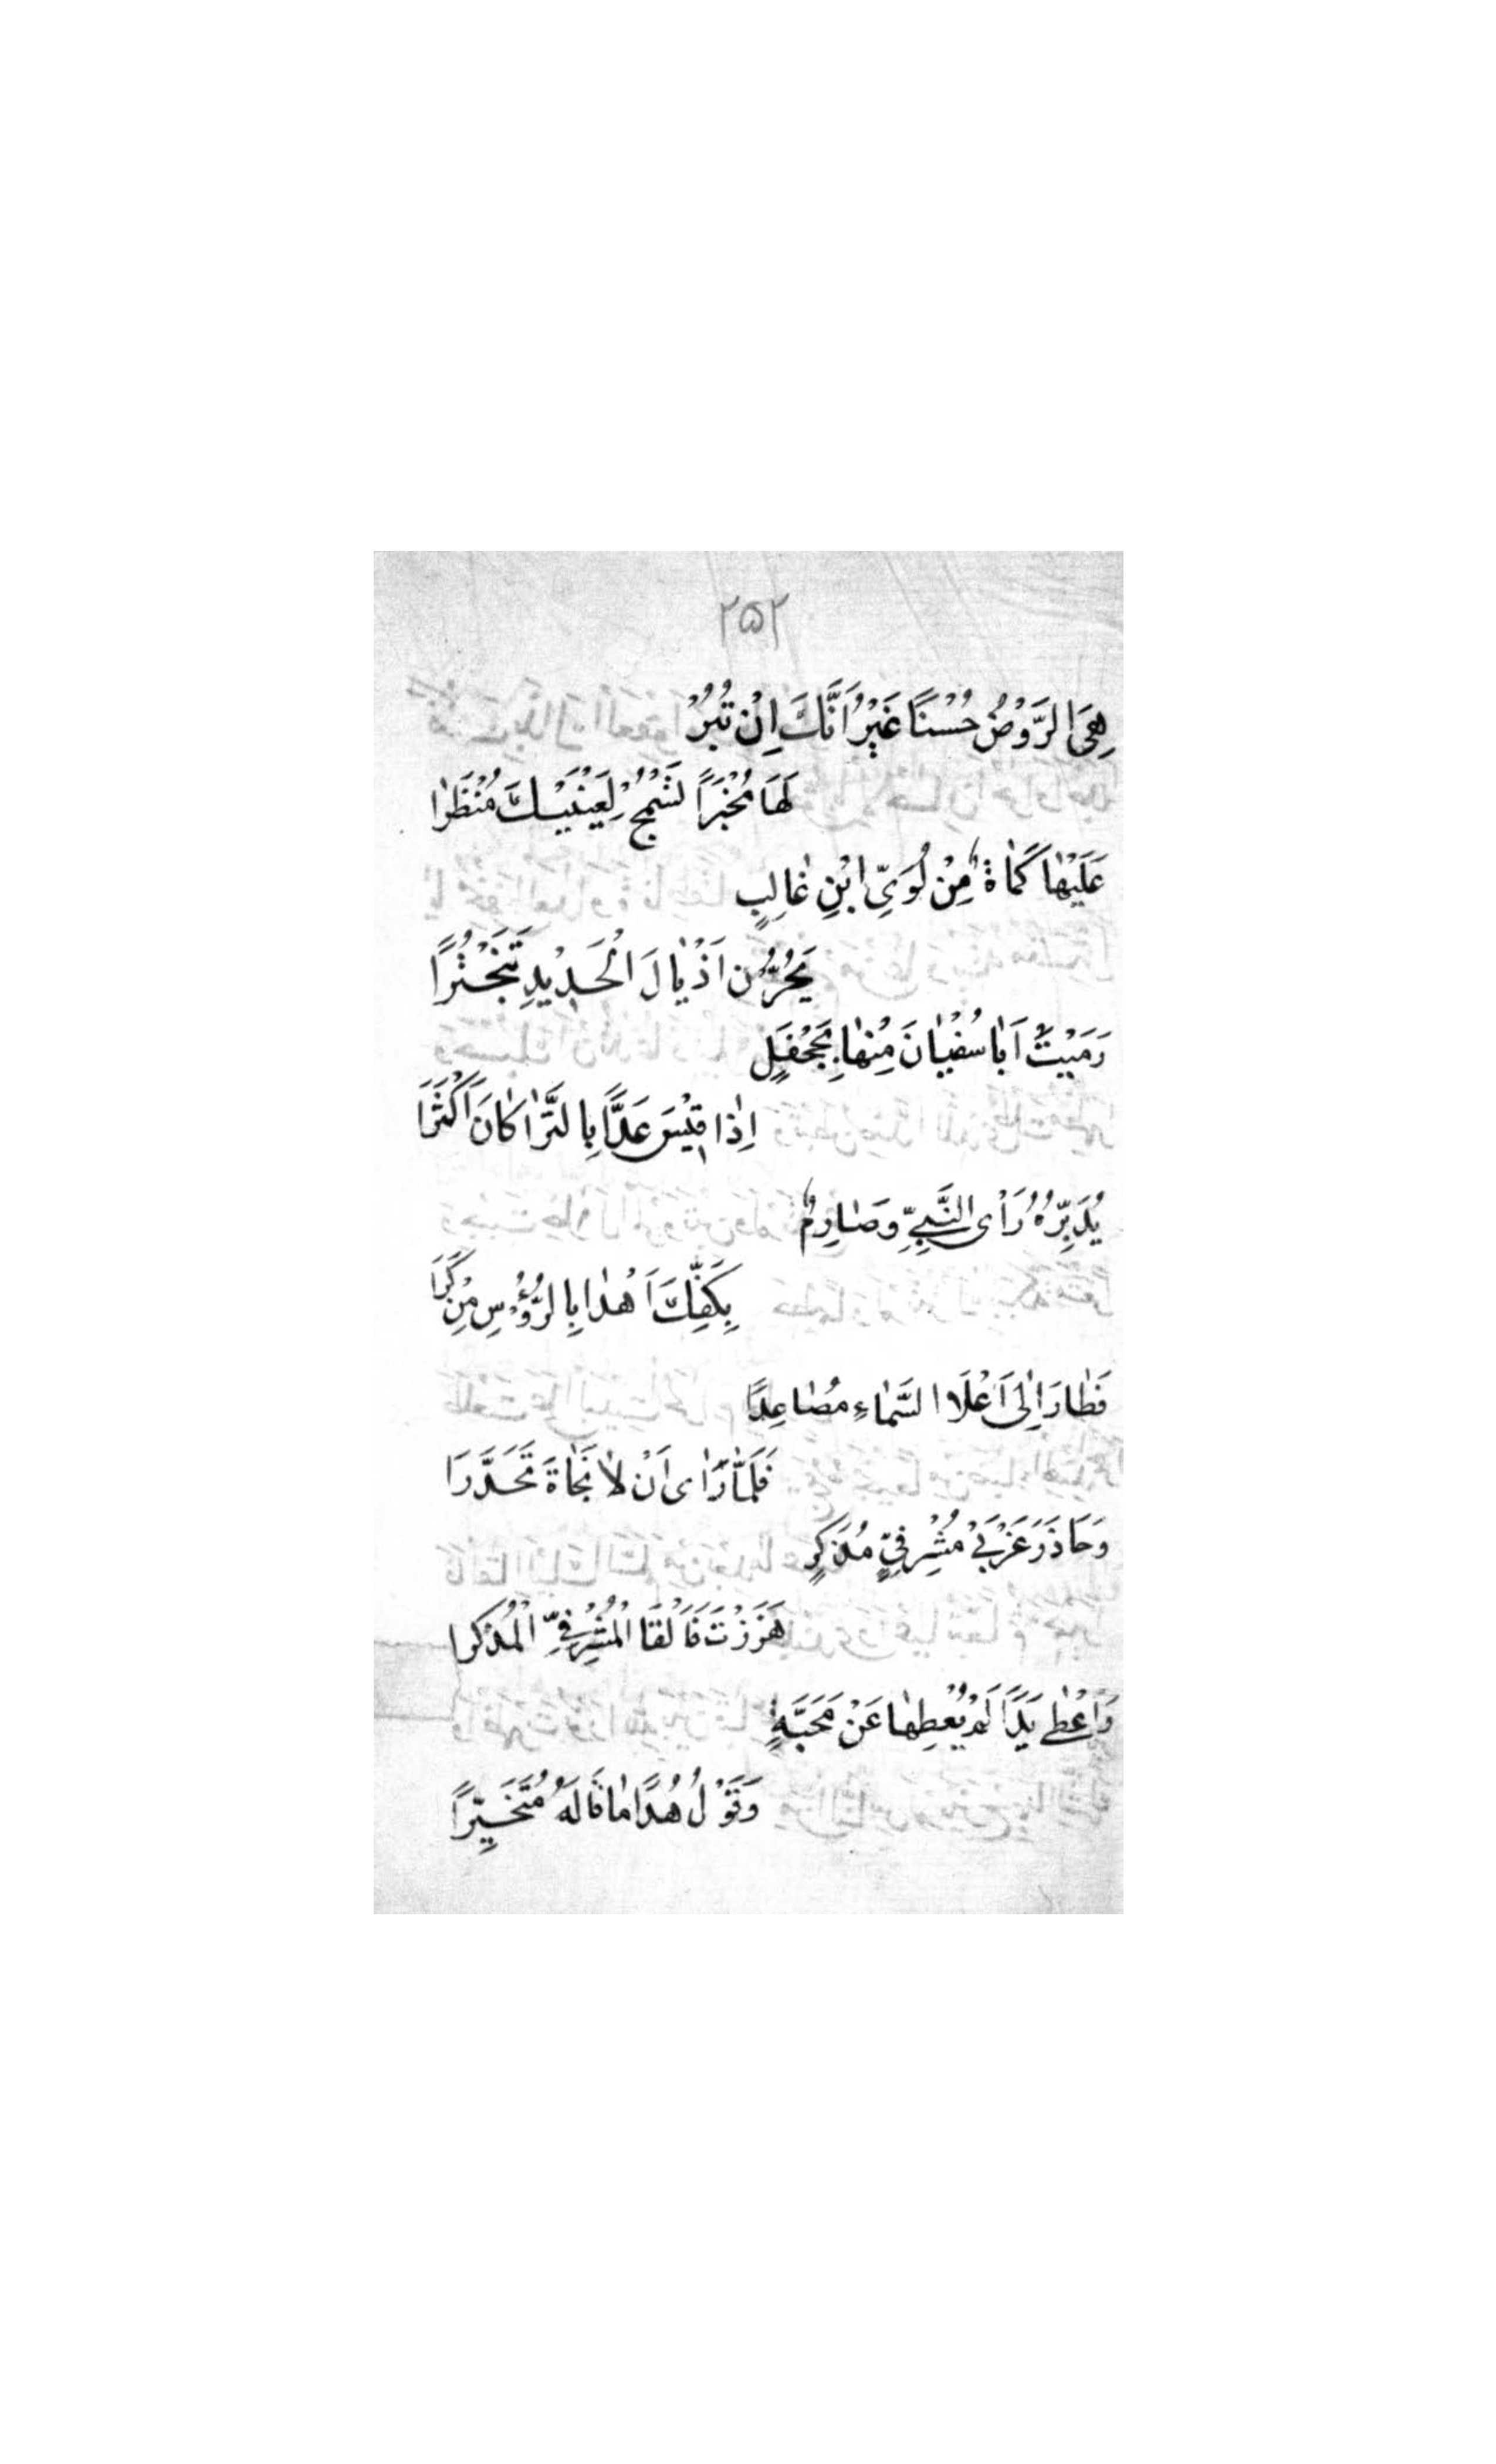 ٢٥٢
هِىَ الرَّوْضُ حُسْنًا غَيْرُ اَنَّكَ اِنْ تُبُرْ
لَهَا مُخْبَرًا لَسْمُجْ لِعَيْنَيْكَ مُنْظَرًا
عَلَيْهٰا كُمٰاةٌ مِنْ لُوَىِّ ابْنِ غٰالِبٍ
يَجُرُّنَ اَذْيٰالَ الْحَدِيْدِ تَبَخْتُرًا
رَمَيْتَ اَبٰا سُفْيٰانَ مِنْهٰا بِجَحْفَلٍ
اِذٰا قِيْسَ عَدًّا بِالثَّرٰا كٰانَ اَكْثَرَا
يُدَبِّرُهُ رَأْىُ النَّبِىِّ وَصٰارِمٌ
بِكَفِّكَ اَهْدٰا بِالرُّؤُسِ مِنْ كَرًا
فَطٰارَ اِلٰى اَعْلَا السَّمٰاءِ مُصٰاعِدًا
فَلَمّٰا رَاٰى اَنْ لٰا نَجٰاةَ تَحَدَّرَا
وَحَاذَرَ غَرْبَىْ مُشْرِفِىٍّ مُذَكَّرٍ
هَزَزْتَ فَاَلْقَا الْمُشْرِفِىِّ الْمُذَكَّرا
وَاَعْطٰى يَدًا لَمْ يُعْطِهٰا عَنْ مَحَبَّةٍ
وَقَوْلُ هُدًا مٰا قَالَهُ مُتَخَيِّرًا